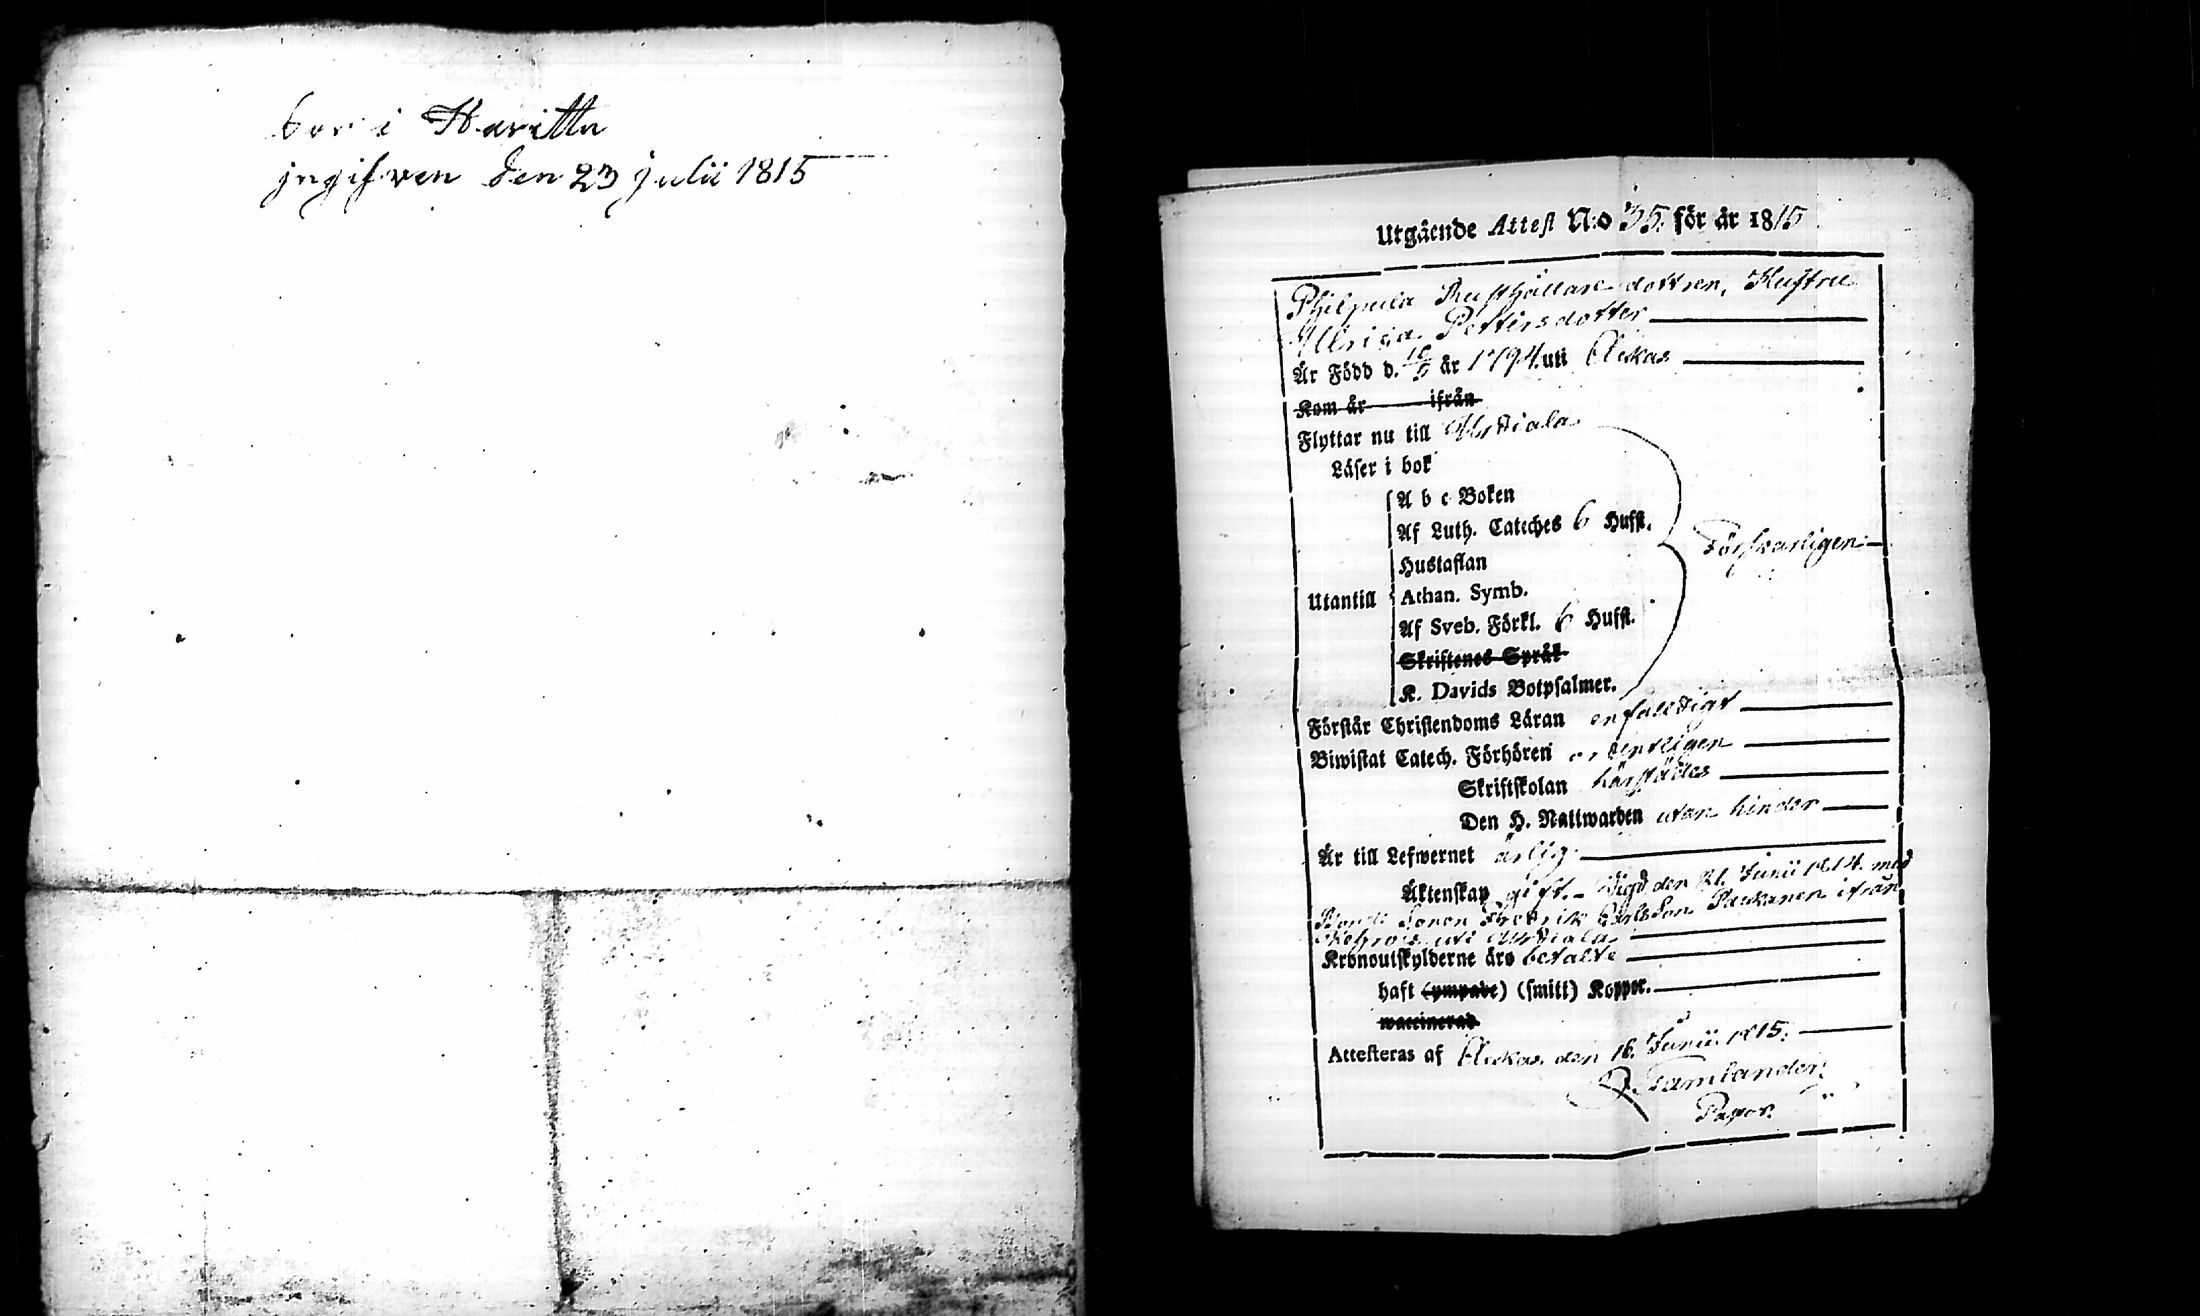 bor i Haritta
jngifven den 23 Julii 1815
Utgående Attest N:o 35. för år 1815
Philpula Rusthållare dottren, Hustru
Ulrica Pettersdotter
Är Född d. 16/5 år 1794. uti Ackas
Kom år ifrån
Flyttar nu till Urdiala
Läser i bok
A b c Boken
Af Luth. Cateches 6 Hufst.
Förswarligen
Hustaflan
Utantill Athan. Symb.
Af Sveb. Förkl. 6 Hufst.
Skriftenes Språk
K. Davids Botpsalmer.
Förstår Christendoms Läran enfaldigt
Biwistat Catech. Förhören ordenteligen
Skriftskolan härstädes
Den H. Nattwarden utan hinder
Är till Lefwernet ärlig
Äktenskap gift. - Vigd den 21. Junii 1814. med
Bonde Sonen Fredrik Carlsson ifrån
uti Urdiala
Kronoutskylderne äro betalte
haft (ympade) (smitt) Koppor.
waccinerad
Attesteras af Ackas den 16. Junii 1815.
Tamlander
Pastor.